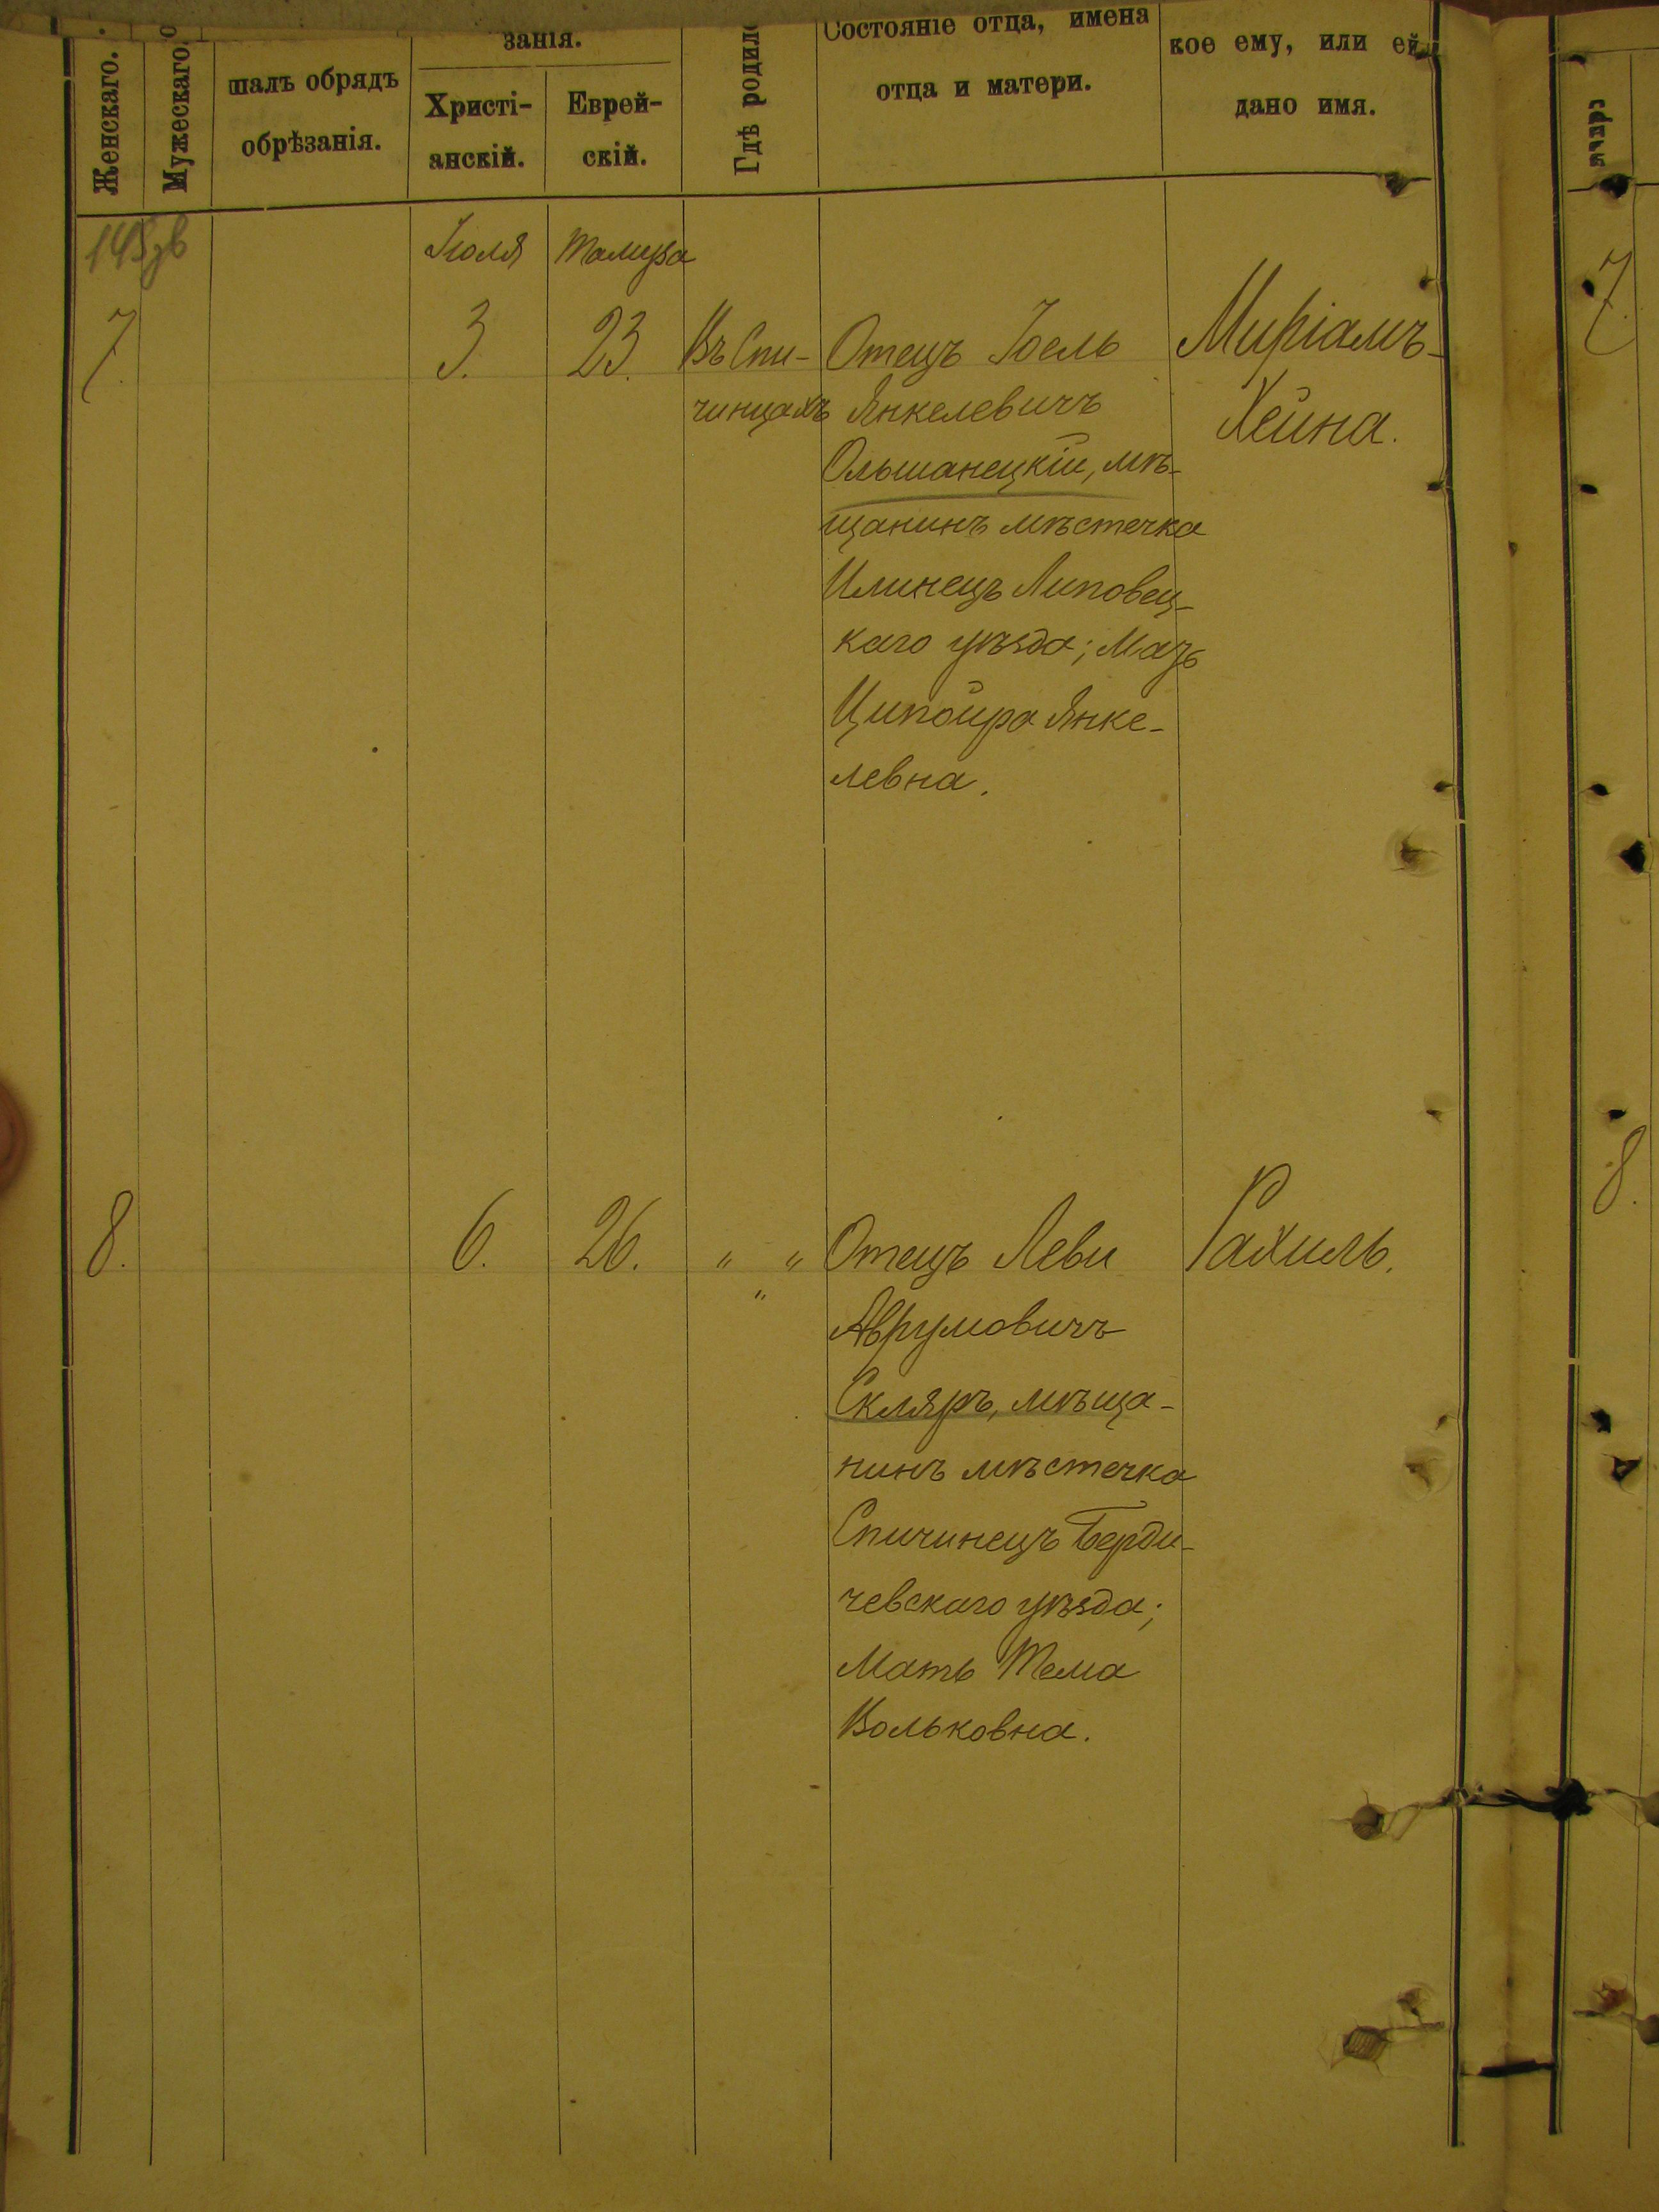 Женскаго.
Мужескаго
шалъ обрядъ
обрѣзанія.
занія.
Христі-
анскій.
Еврей-
скій.
Гдѣ родил
Состояніе отца, имена
отца и матери.
кое ему, или ей
дано имя.
Іюля
Тамуза
7.
3.
23.
Въ Спи-
чинцахъ
Отецъ Іоель
Янкелевичъ
Ольшанецкій, мѣ-
щанинъ мѣстечка
Илинецъ Липовец-
каго уѣзда; Мать
Ципойра Янке-
левна.
Миріамъ-
Хейна.
7.
8.
6.
26.
" "
"
Отецъ Леви
Аврумовичъ
Скляръ, мѣща-
нинъ мѣстечка
Спичинецъ Берди-
чевскаго уѣзда;
Мать Тема
Вольковна.
Рахиль.
8.